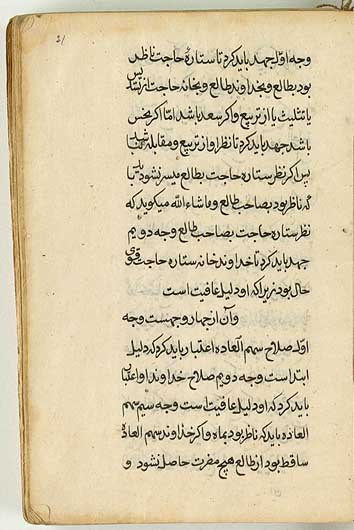 وجه اول جهد باید کرد تا ستارهٔ حاجت ناظر
بود بطالع و بخداوند طالع و بخانهٔ حاجت از تسدیس
یا تثلیث یا از تربیع و اکر سعد باشد اما اکر نحس
باشد جهد باید کرد تا نظر او از تربیع و مقابله نباشد
پس اکر نظر ستاره حاجت بطالع میسر نشود باید
که ناظر بود بصاحب طالع و ماشاء الله میکوید که
نظر ستاره حاجت بصاحب طالع وجه دویم
جهد باید کرد تا خداوند خانه ستاره حاجت قوی
حال بود زیرا که او دلیل عافیت است
و آن از چهار وجهست وجه
اول صلاح سهم العاده اعتبار باید کرد که دلیل
ابتدا ست وجه دویم صلاح خداوند او اعتبار
باید کرد که او دلیل عافیت است وجه سیم سهم
العاده باید که ناظر بود بماه و اکر خداوند سهم العاده
ساقط بود از طالع هیچ مضرت حاصل نشود و